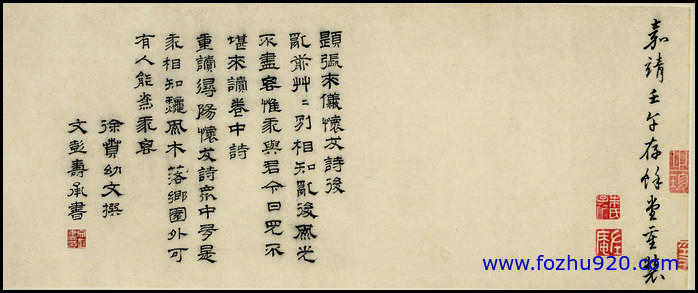 嘉靖壬午存餘堂重裝
題張來儀懷友詩後
亂前艸〻別相知亂後風光
不盡惟我與君今日不
堪來讀卷中詩
重讀潯陽懷友詩眾中多是
我相知風木落鄉園外可
有人能我
徐賁幼文撰
文彭壽承書
www.fozhu920.com